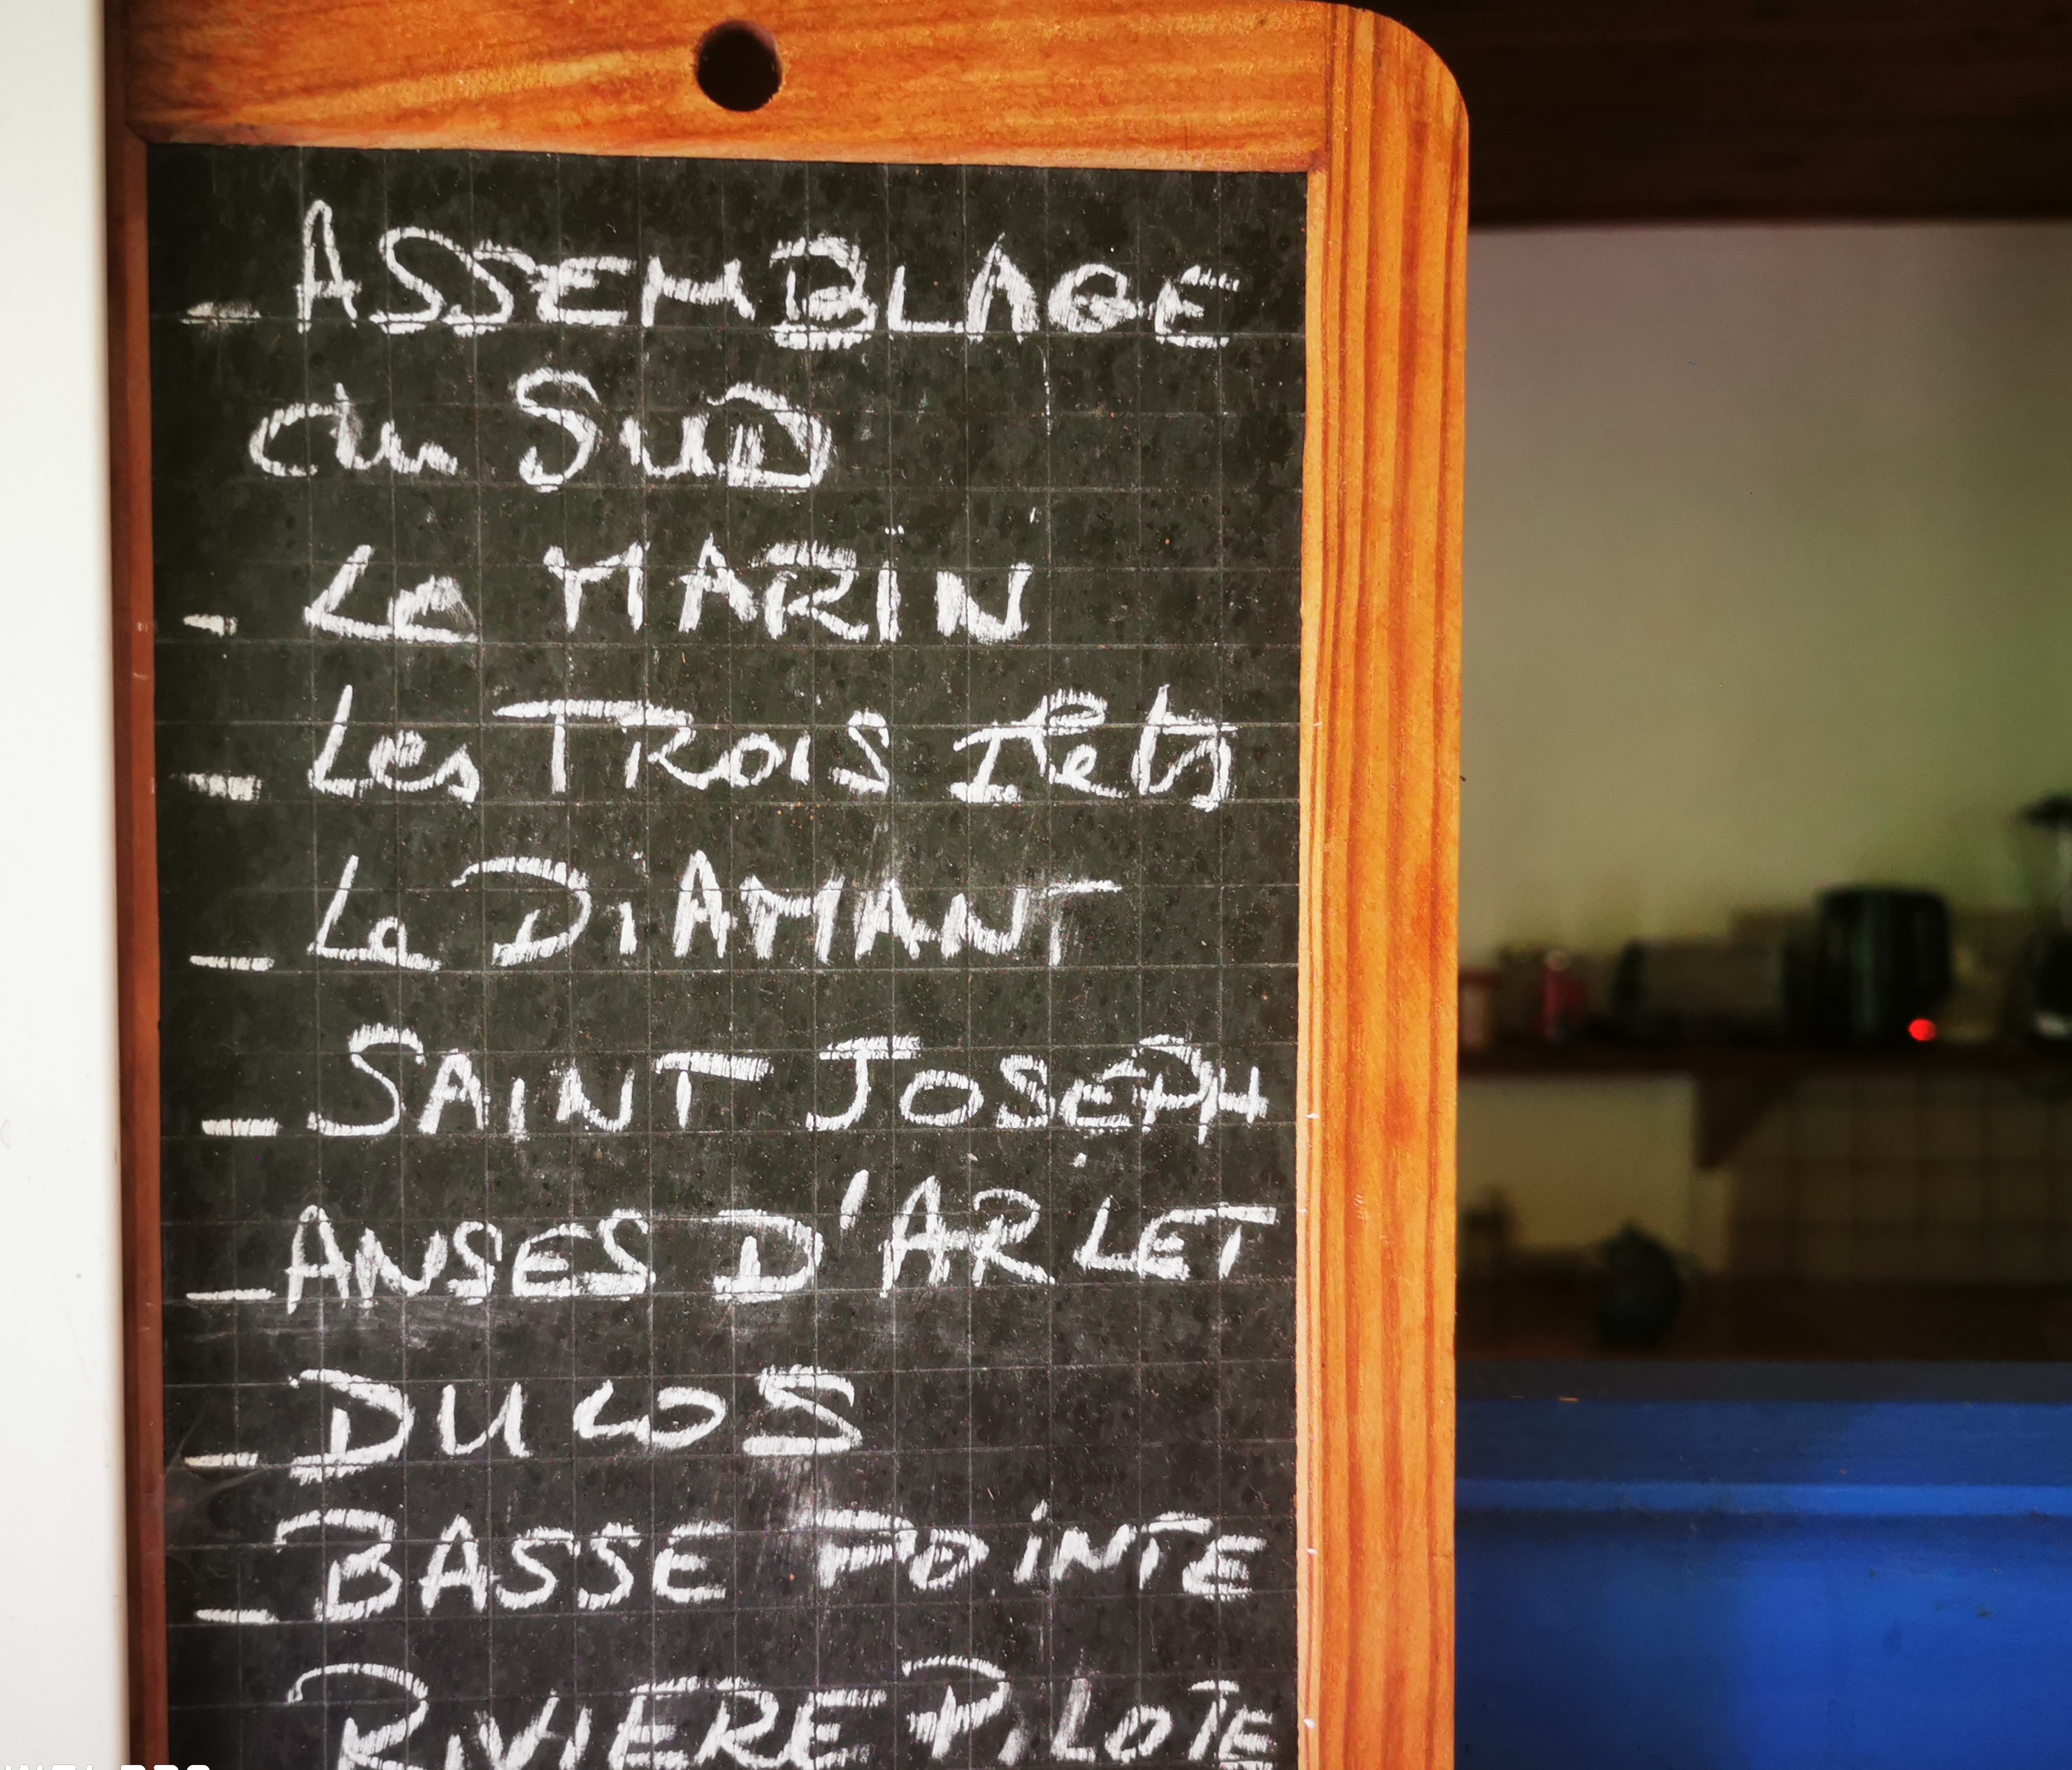 _ ASSEMBLAGE
du SUD
_ Le MARiN
_ Les TROIS Ilets
_ Le DiAMANT
_ SAINT JOSEPH
_ ANSES D'ARLET
_ DUCOS
_ BASSE POiNTE
RIVIERE PiLOTE